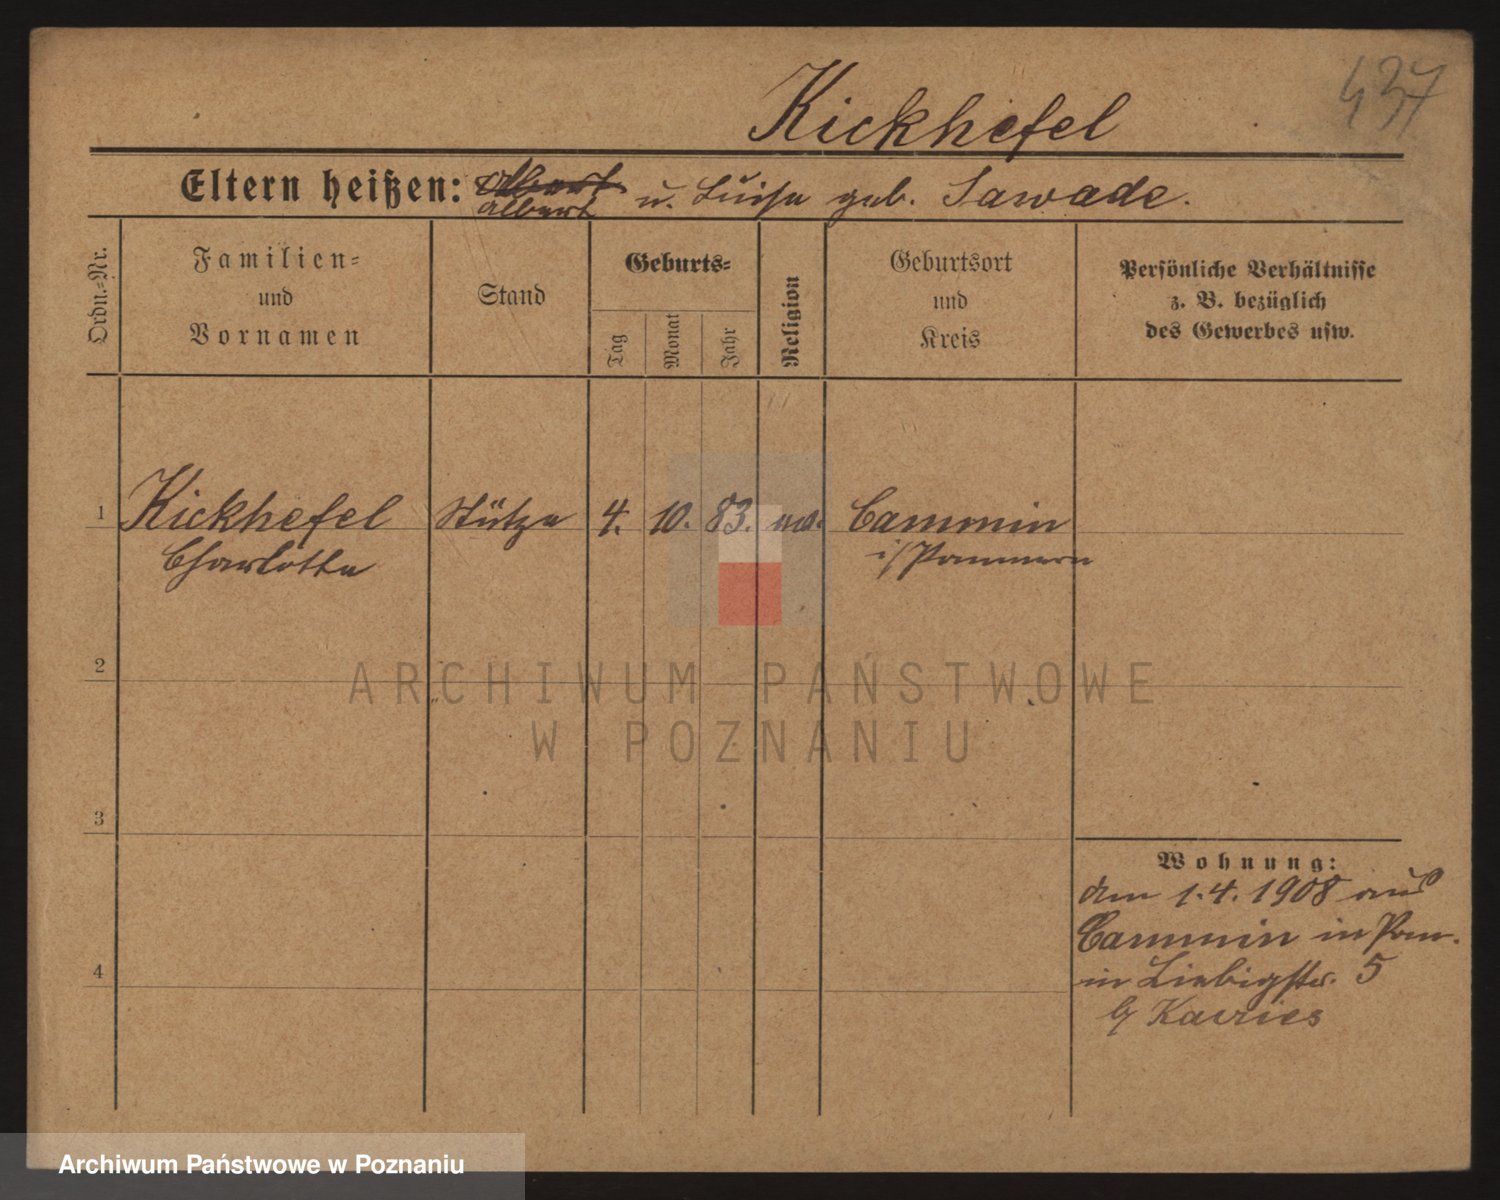 437
Kickhefel
Eltern heißen: Albert u. Luise geb. Sawade.
Albert
Ordn.-Nr.
Familien-
und
Vornamen
Stand
Geburts-
Tag
Monat
Jahr
Religion
Geburtsort
und
Kreis
Persönliche Verhältnisse
z. B. bezüglich
des Gewerbes usw.
1 Kickhefel Stütze 4. 10. 83. Cammin
Charlotte i/Pommern
2
ARCHIWUM PAŃSTWOWE
W POZNANIU
3
Wohnung:
den 1.4.1908 aus
Cammin in Pom.
4
in Liebigstr. 5
Archiwum Państwowe w Poznaniu